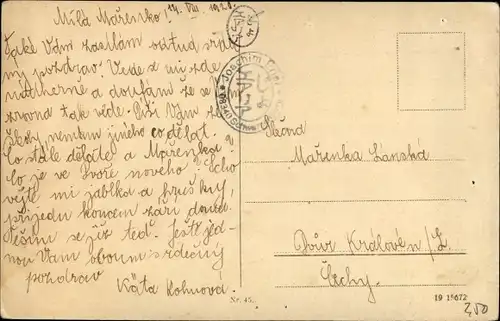 Milá Mařenko! 14. VIII. 1921.
Také Vám zasílám odtud srdč
ný pozdrav! Vede se mi zde
nádherně a doufám že se Vám
zrovna tak vede. Píši Vám z
škody, nemám jiného co dělat.
Co stále děláte a Mařenka?
Co je ve Dvoře nového? Scho
vejte mi jablka a hrušky,
přijedu koncem září domů.
Těším se již teď. Ještě jed
nou Vám oboum srdečný
pozdrav Káťa Kohnová.
Joachim
Slečna
Mařenka Lánská
Dvůr Králové n/L.
Čechy.
Nr. 45.
19 15672
2,50